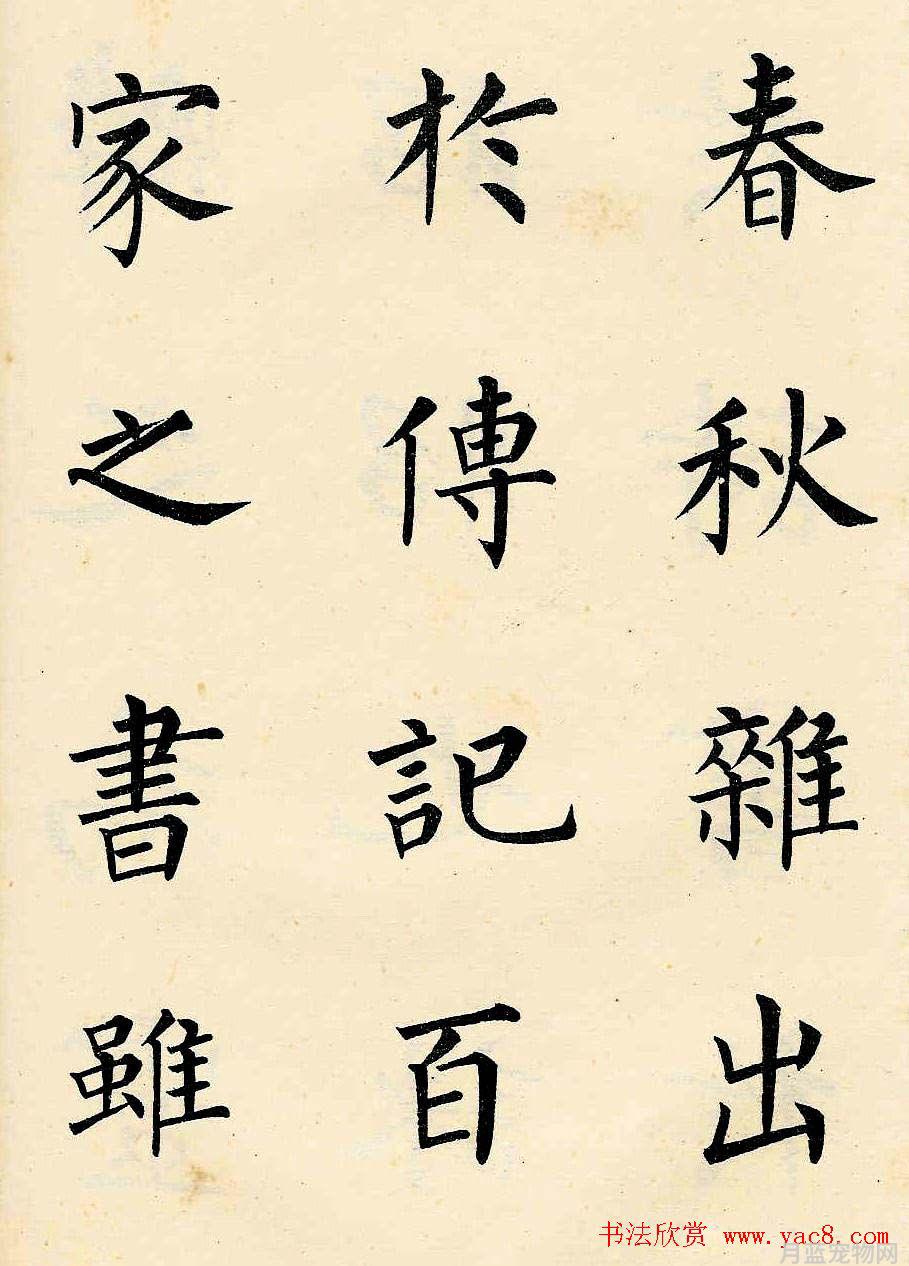 春秋雜出
於傳記百
家之書雖
书法欣赏 www.yac8.com
月蓝宠物网